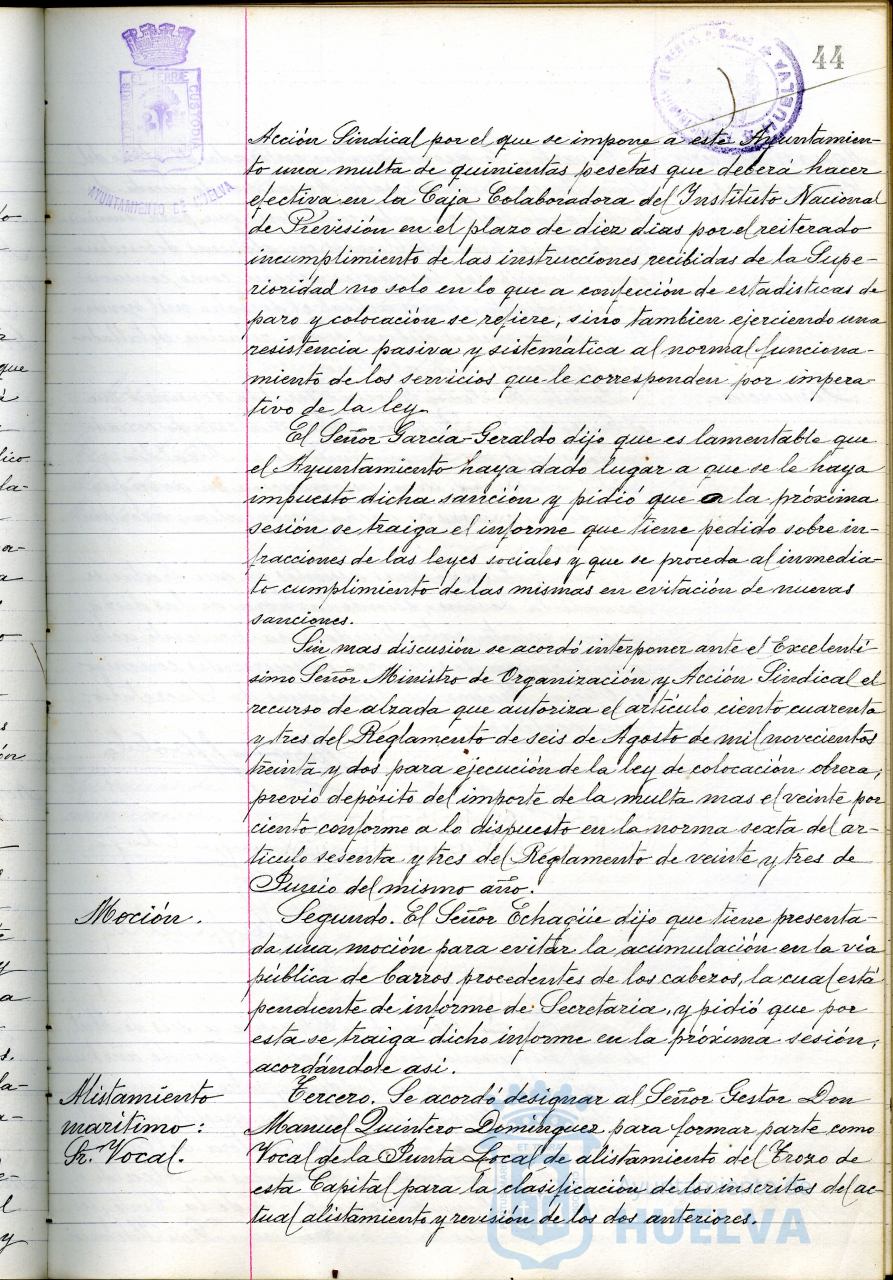 44
AYUNTAMIENTO DE HUELVA
Acción Sindical por el que se impone a este Ayuntamien-
to una multa de quinientas pesetas que deberá hacer
efectiva en la Caja Colaboradora del Instituto Nacional
de Previsión en el plazo de diez dias por el reiterado
incumplimiento de las instrucciones recibidas de la Supe-
rioridad no solo en lo que a confección de estadisticas de
paro y colocación se refiere, sino tambien ejerciendo una
resistencia pasiva y sistemática al normal funciona-
miento de los servicios que le corresponden por impera-
tivo de la ley.
El Señor García-Geraldo dijo que es lamentable que
el Ayuntamiento haya dado lugar a que se le haya
impuesto dicha sanción y pidió que a la próxima
sesión se traiga el informe que tiene pedido sobre in-
fracciones de las leyes sociales y que se proceda al inmedia-
to cumplimiento de las mismas en evitación de nuevas
sanciones.
Sin mas discusión se acordó interponer ante el Excelentí-
simo Señor Ministro de Organización y Acción Sindical el
recurso de alzada que autoriza el artículo ciento cuarenta
y tres del Reglamento de seis de Agosto de mil novecientos
treinta y dos para ejecución de la ley de colocación obrera,
previo depósito del importe de la multa mas el veinte por
ciento conforme a lo dispuesto en la norma sexta del ar-
tículo sesenta y tres del Reglamento de veinte y tres de
Junio del mismo año.
Moción.
Segundo. El Señor Echagüe dijo que tiene presenta-
da una moción para evitar la acumulación en la via
pública de barros procedentes de los cabezos, la cual está
pendiente de informe de Secretaria, y pidió que por
esta se traiga dicho informe en la próxima sesión,
acordándose asi.
Alistamiento
marítimo:
Sr. Vocal.
Tercero. Se acordó designar al Señor Gestor Don
Manuel Quintero Domínguez para formar parte como
Vocal de la Junta Local de alistamiento del Trozo de
esta Capital para la clasificación de los inscritos del ac-
tual alistamiento y revisión de los dos anteriores.
HUELVA